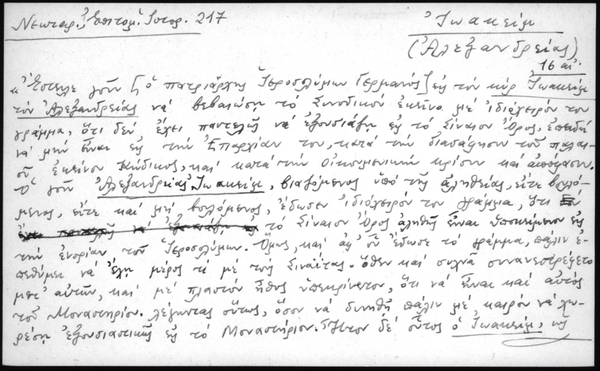 Νεκταρ., Ἐπιτομ. Ἱστορ. 217
Ἰωακείμ
(Ἀλεξανδρείας)
16 αἰ.
"Ἔστειλε γοῦν [ὁ πατριάρχης Ἱεροσολύμων Γερμανός] εἰς τὸν κὺρ Ἰωακεὶμ
τὸν Ἀλεξανδρείας νὰ βεβαιώσῃ τὸ Συνοδικὸν ἐκεῖνο μὲ ἰδιόχειρόν του
γράμμα, ὅτι δὲν ἔχει παντελῶς νὰ ἐξουσιάζῃ εἰς τὸ Σίναιον Ὄρος, ἐπειδὴ
νὰ μὴν εἶναι εἰς τὴν Ἐπαρχίαν του, κατὰ τὴν διάταξιν τοῦ
ἐκείνου Κώδικος, καὶ κατὰ τὴν Οἰκουμενικὴν κρίσιν καὶ ἀπόφασιν.
Ὁ γοῦν Ἀλεξανδρείας Ἰωακείμ, βιαζόμενος ὑπὸ τῆς ἀληθείας, εἴτε βουλό-
μενος, εἴτε καὶ μὴ βουλόμενος, ἔδωσεν ἰδιόχειρόν του γράμμα, ὅτι
τὸ Σίναιον Ὄρος ἀληθῶς εἶναι ὑποκείμενον εἰς
τὴν ἐνορίαν τοῦ Ἱεροσολύμων. Ὅμως, καὶ ἀφ' οὗ ἔδωσε τὸ γράμμα, πάλιν ἐ-
πεθύμει νὰ ἔχῃ μέρος τι μὲ τοὺς Σιναΐτας. ὅθεν καὶ συχνὰ συνανεστρέφετο
μετ' αὐτῶν, καὶ μὲ πλαστὸν ἦθος ὑπεκρίνετον, ὅτι νὰ εἶναι καὶ αὐτὸς
τοῦ Μοναστηρίου. λέγοντας οὕτως, ὅσον νὰ δυνηθῇ πάλιν μὲ καιρὸν νὰ
ἐξουσιαστικῶς εἰς τὸ Μοναστήριον. Ἦτον δὲ οὗτος ὁ Ἰωακείμ, ὡς